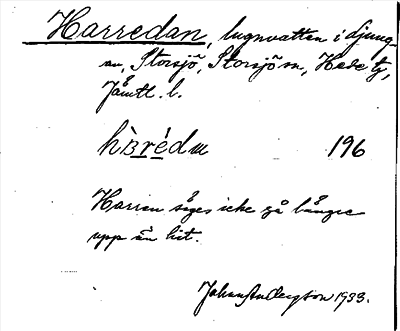 Harredan, lugnvatten i Ljung-
an, Storsjö, Storsjö sn, Hede tg,
Jämtl. l.
196
Harren säges icke gå längre
upp än hit.
Johan Anderson 1933.